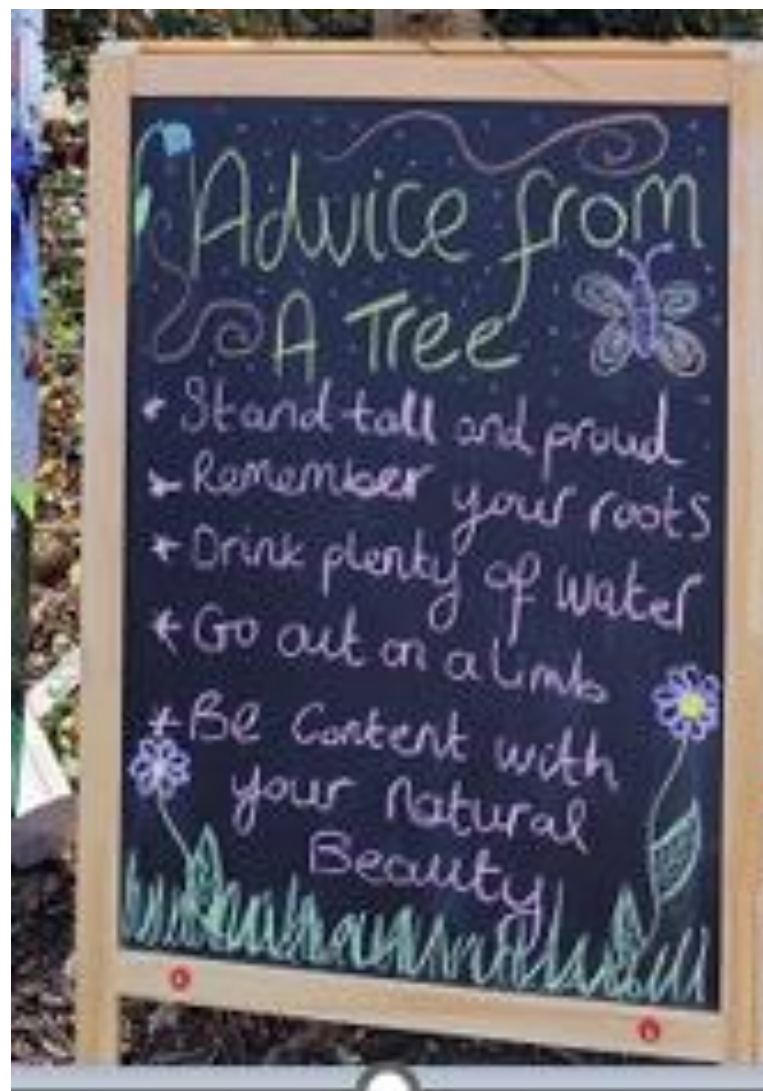 Advice from
A Tree
* Stand tall and proud
* Remember your roots
* Drink plenty of water
* Go out on a limb
* Be Content with
your natural
Beauty